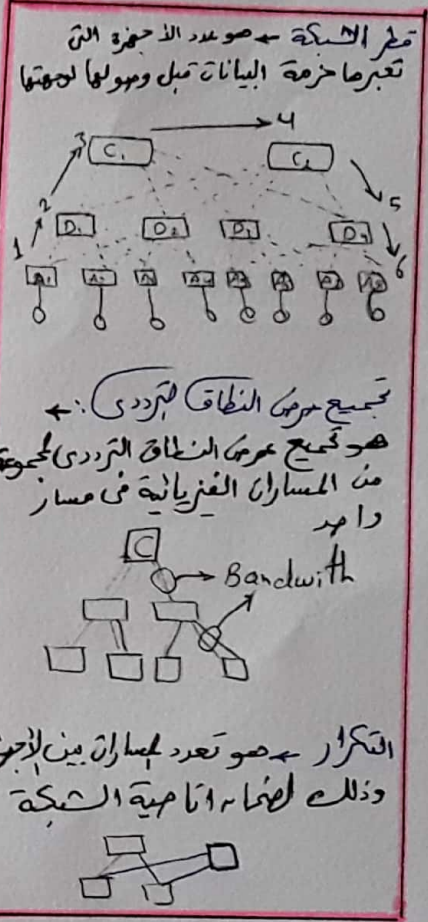 قطر الشبكة ← هو عدد الأجهزة التى
تعبرها حزمة البيانات قبل وصولها لوجهتها
3 → 4
C1 C2
2 5
D1 D2 D3 D4
1 6
A1 A2 A3 A4
تجميع عرض النطاق الترددى :←
هو تجميع عرض النطاق الترددى لمجموعة
من المسارات الفيزيائية فى مسار
واحد
C
→ Bandwith
التكرار ← هو تعدد المسارات بين الأجهزة
وذلك لضمان اتاحية الشبكة